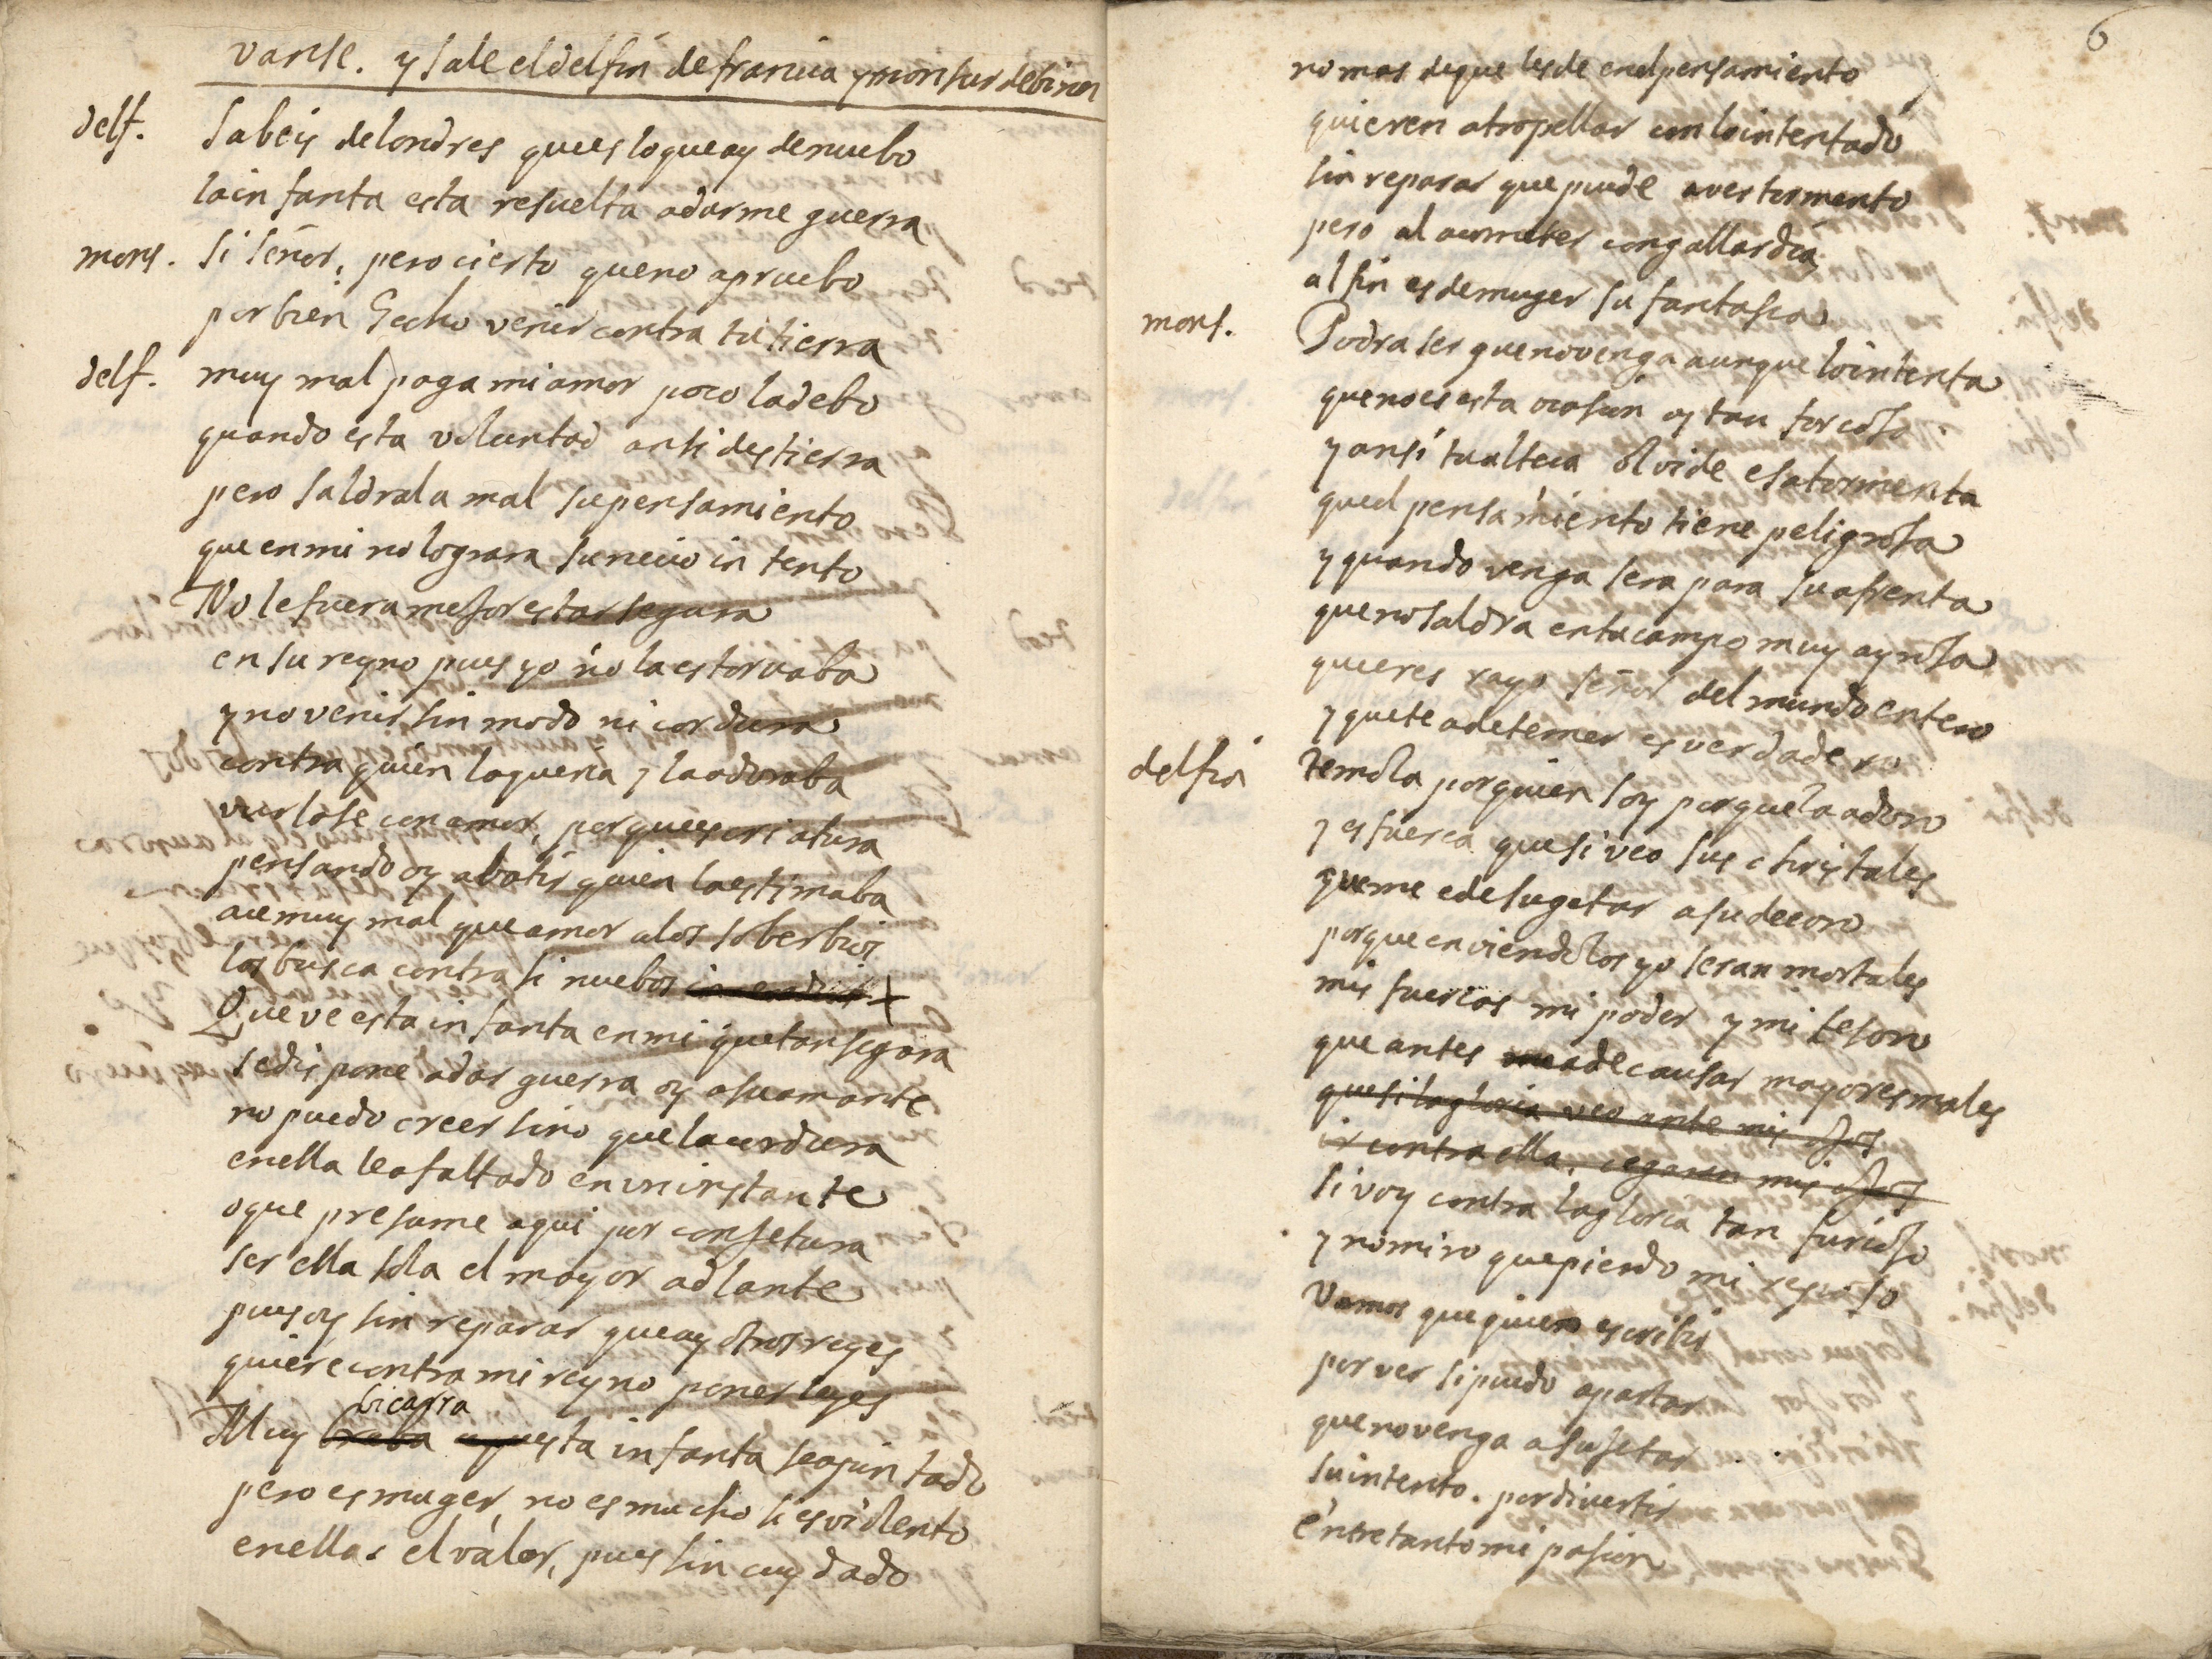 vanse. y sale el delfin de francia y monsur debiner
delf. Sabeis de londres que es lo que ay de nuebo
la infanta esta resuelta a darme guerra
mons. si señor, pero cierto que no apruebo
por bien hecho venir contra tu tierra
delf. muy mal paga mi amor poco la debo
quando esta voluntad ansi destierra
pero saldrala mal su pensamiento
que en mi no lograra su necio intento
No le fuera mejor estar segura
en su reyno pues yo no la estorvaba
y no venir sin modo ni cordura
contra quien la queria y la adoraba
vurlose con amor, porque es criatura
pensando oy abatir quien la estimaba
ace muy mal que amor a los soberbios
los busca contra si nuebos
Que ve esta infanta en mi que tan segora
se dispone a dar guerra oy a su amante
no puedo creer sino que la cordura
en ella le a faltado en un instante
o que presume aqui por conjetura
ser ella sola el mayor adlante
pues oy sin reparar que ay otros reyes
quiere contra mi reyno poner leyes
bicarra
Muy braba esta infanta se a juntado
pero es muger, no es mucho si es violento
en ellas el valor, pues sin cuydado
6
no mas de que les de en el pensamiento
quieren atropellar con lo intentado
sin reparar que puede aver tormento
pero al acometer con gallardia
al fin es de muger su fantasia
mons. Podra ser que no venga aunque lo intenta
que no es esta ocasion oy tan forcosa
y ansi tu alteca olvide esa tormenta
que el pensamiento tiene peligrosa
y quando venga sera para su afrenta
que no saldra en ta campo muy ayrosa
que eres rayo señor del mundo entero
y que te a de temer es verdadero
delfin temola por quien soy porque la adoro
y es fuerca que si veo sus christales
que me e de sugetar a su decoro
porque en viendolos yo seran mortales
mis fuercas mi poder y mi tesoro
que antes a de causar mayores males
que si la gloria veo ante mis ojos
ir contra ella. cegaran mis ojos
si voy contra la gloria tan furioso
y no miro que pierdo mi reposo
Vamos que quiero escribir
por ver si puedo apartar
que no venga a sujetar
su intento. por divertir
entretanto mi pasion